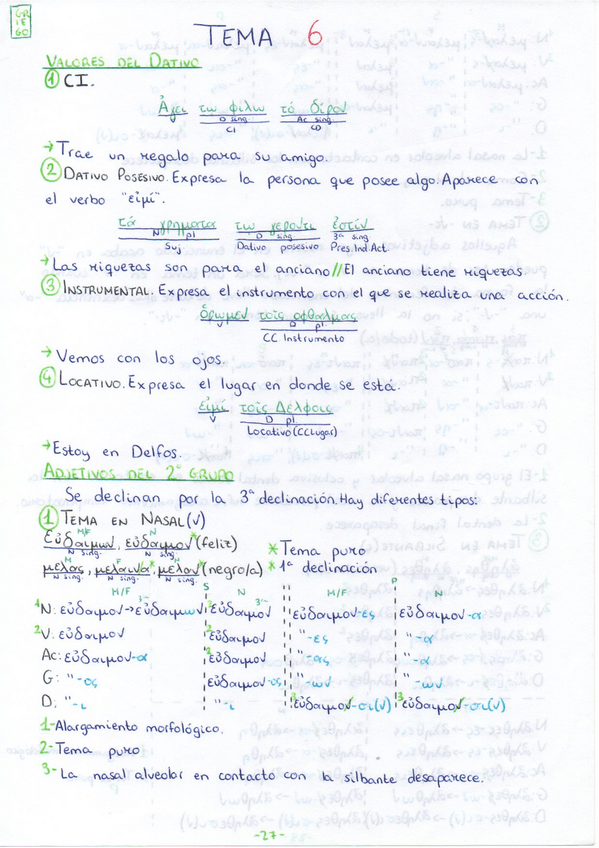 GRIEGO
TEMA 6
VALORES DEL DATIVO
① CI.
Ἄγει τω φίλω τό δῆρον
V D sing. Ac sing.
CI CD
→ Trae un regalo para su amigo.
② DATIVO POSESIVO. Expresa la persona que posee algo. Aparece con
el verbo "εἰμί".
τά χρηματα τω γεροντι ἐστίν
N pl D sing. 3ª sing
Suj Dativo posesivo Pres. Ind. Act.
→ Las riquezas son para el anciano // El anciano tiene riquezas
③ INSTRUMENTAL. Expresa el instrumento con el que se realiza una acción.
ὁρωμεν τοῖς οφθαλμοις
V D pl.
CC Instrumento
→ Vemos con los ojos.
④ LOCATIVO. Expresa el lugar en donde se está.
εἰμί τοῖς Δελφοις
V D pl
Locativo (CCLugar)
→ Estoy en Delfos.
ADJETIVOS DEL 2º GRUPO
Se declinan por la 3ª declinación. Hay diferentes tipos:
① TEMA EN NASAL (ν)
M/F N
Εὐδαιμων, εὐδαιμον* (feliz) * Tema puro
N sing. N sing.
M F N
μελας, μελαινα*, μελαν* (negro/a) * 1ª declinación
N sing. N sing. N sing.
S P
M/F N M/F N
¹N: εὐδαιμον → εὐδαιμων ²εὐδαιμον εὐδαιμον-ες εὐδαιμον-α
²V: εὐδαιμον ²εὐδαιμον "-ες "-α
Ac: εὐδαιμον-α ²εὐδαιμον "-ας "-α
G: "-ος εὐδαιμον-ος "-ων "-ων
D: "-ι "-ι ³εὐδαιμον-σι(ν) ³εὐδαιμον-σι(ν)
1-Alargamiento morfológico.
2-Tema puro
3-La nasal alveolar en contacto con la silbante desaparece.
-27-